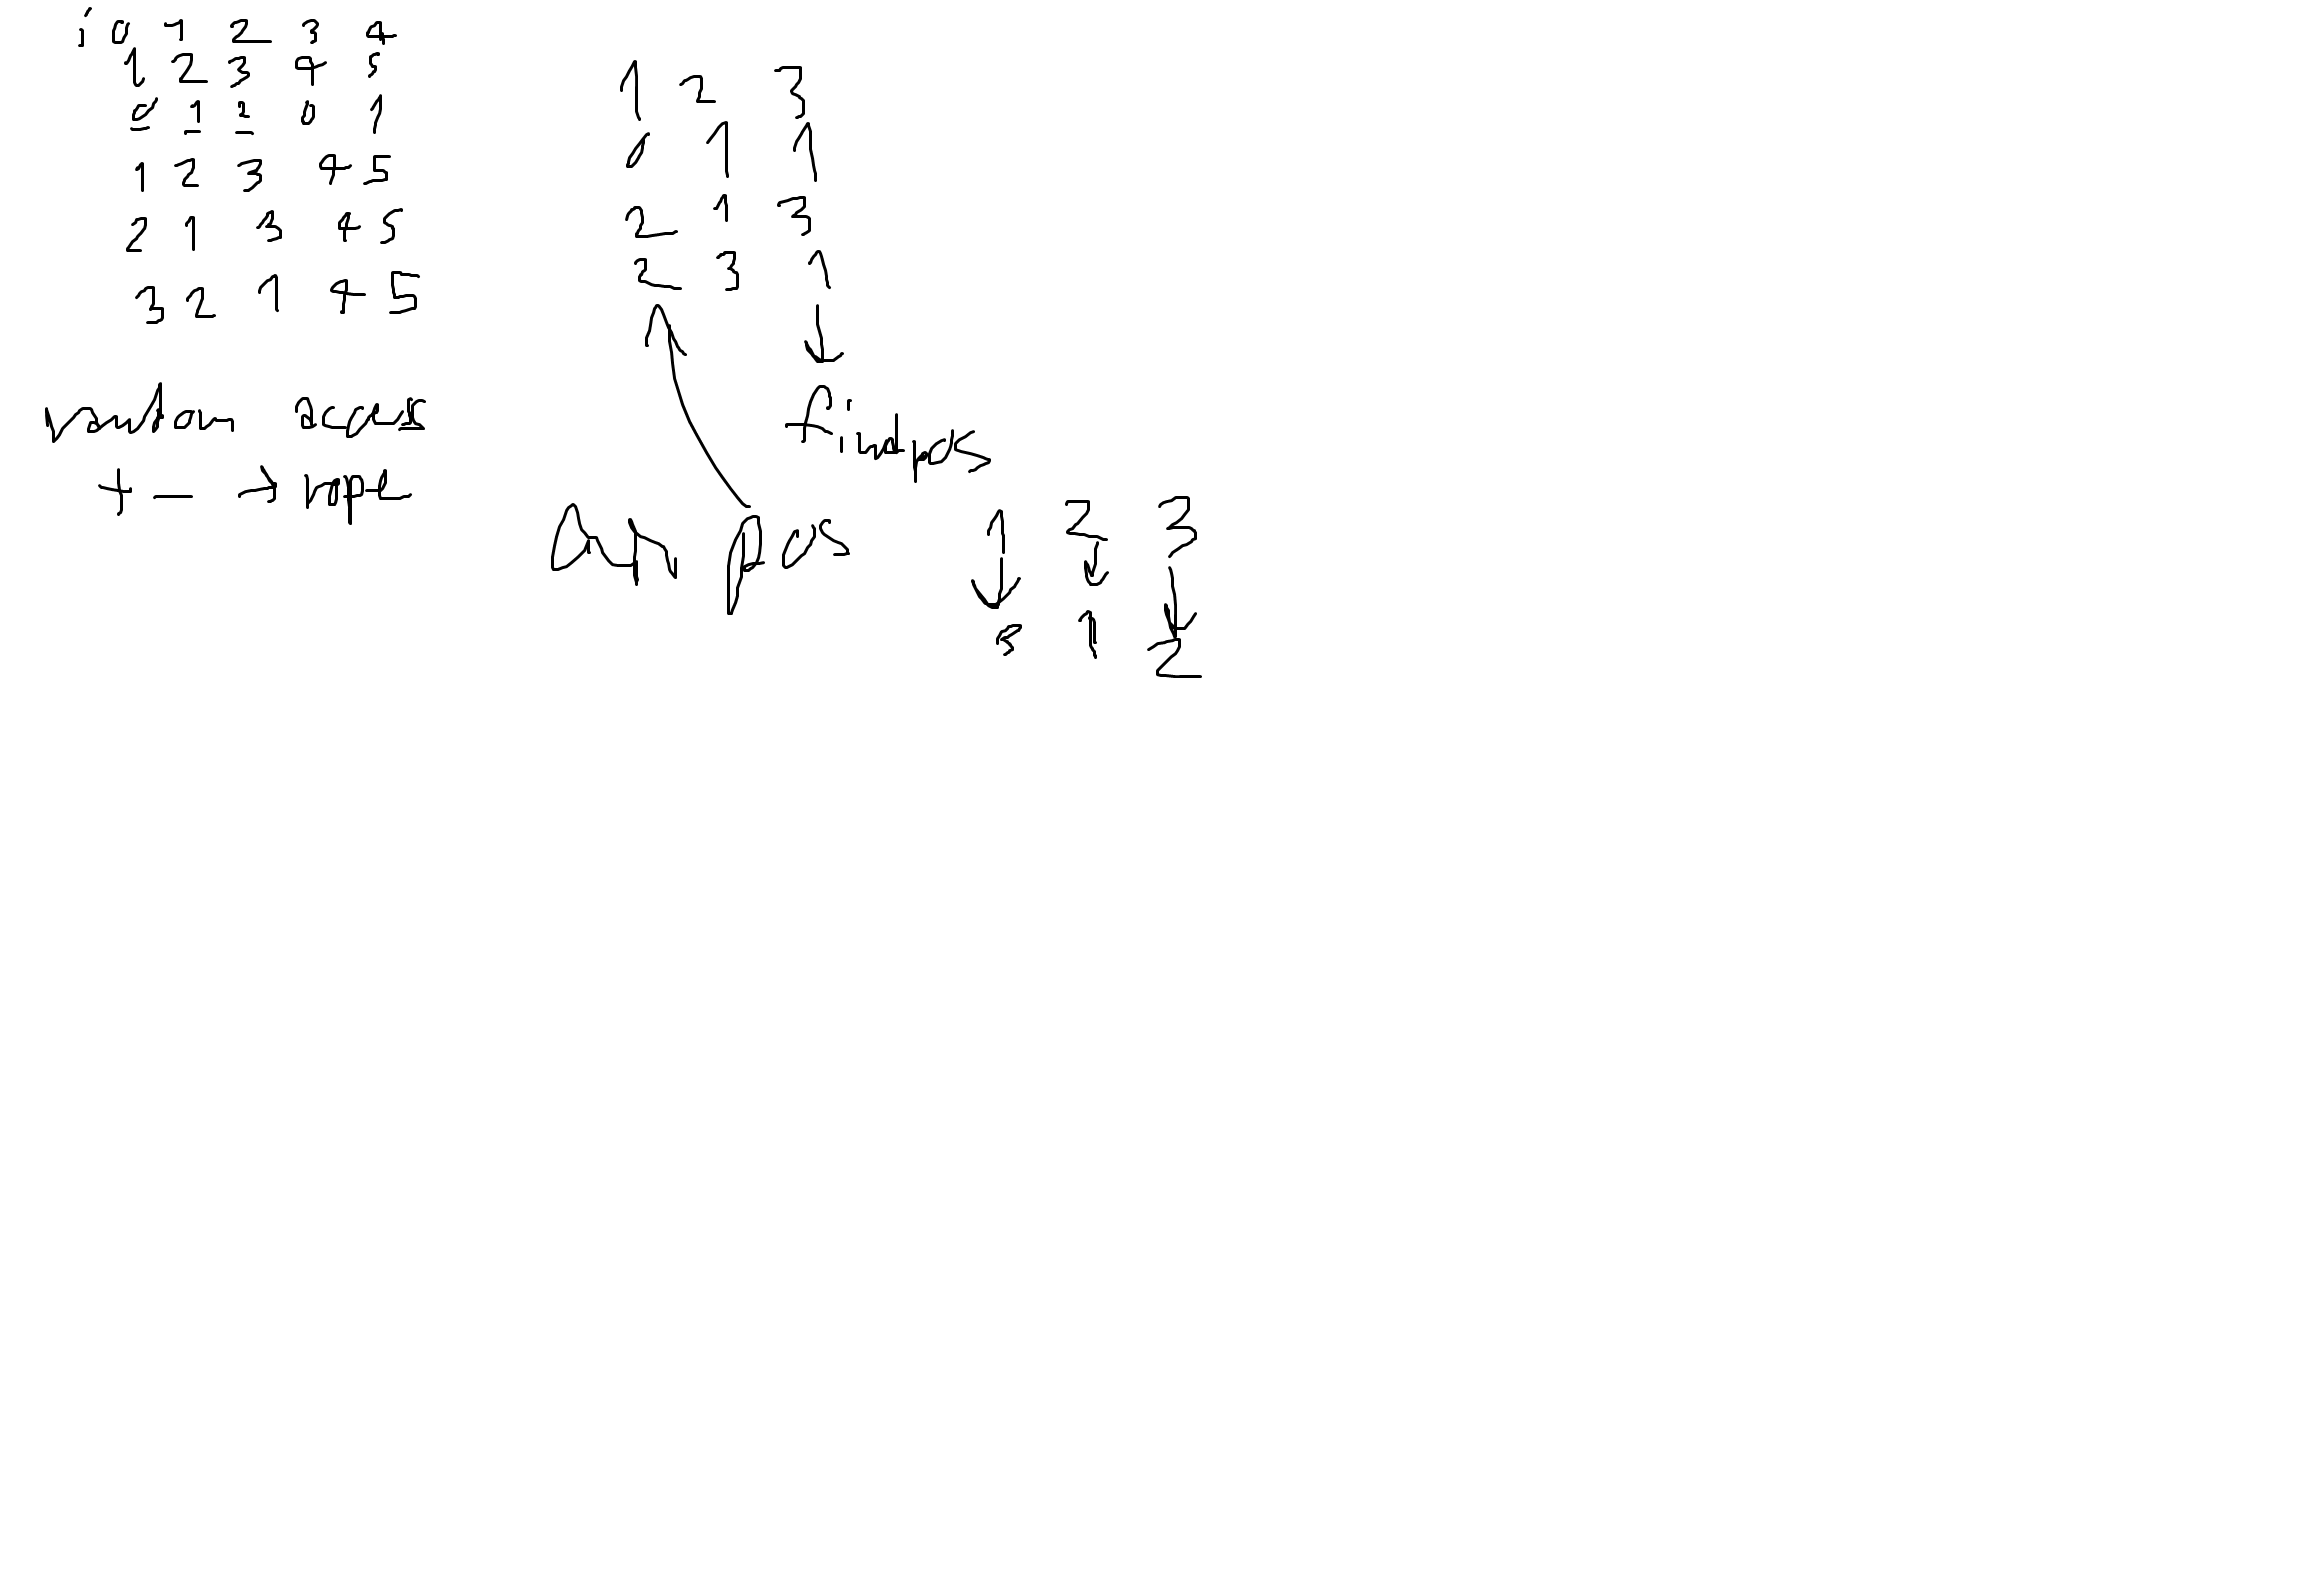 i 0 1 2 3 4
1 2 3 4 5
0 1 2 0 1
1 2 3 4 5
2 1 3 4 5
3 2 1 4 5
random access
+ - → rope
1 2 3
0 1 1
2 1 3
2 3 1
↓
findpos
arr pos
1 2 3
↓ ↓ ↓
3 1 2